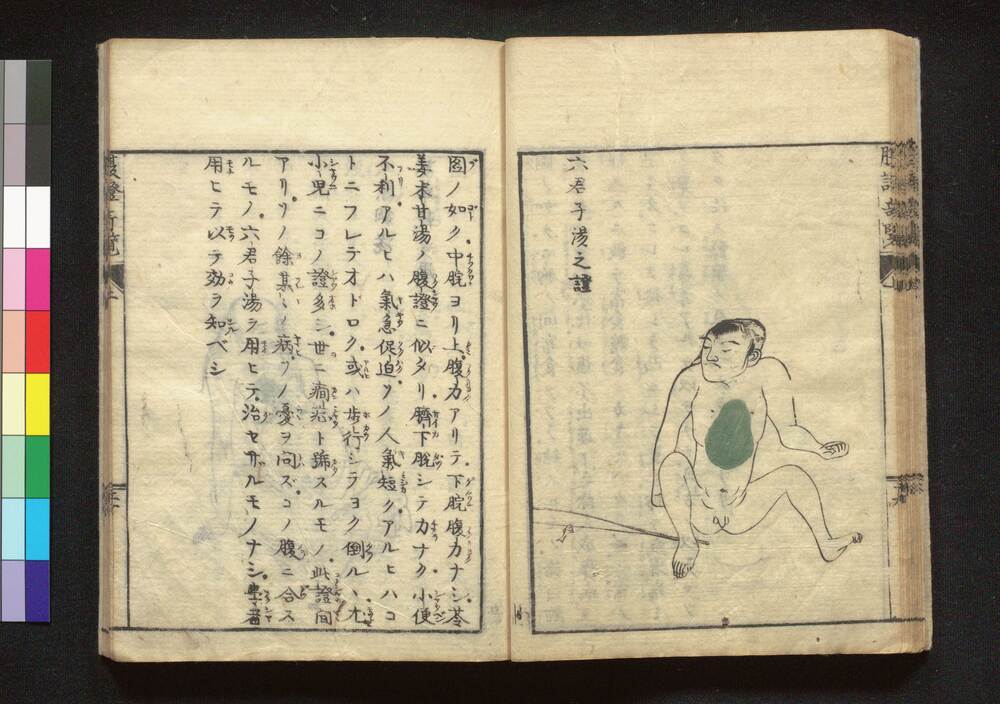 六君子湯之證
圖ノ如ク中脘ヨリ上腹力アリテ下脘腹力ナシ苓
姜朮甘湯ノ腹證ニ似タリ臍下脱シテカナク小便
不利アルヒハ氣急促迫ソノ人氣短クアルヒハコ
トニフレテオドロク或ハ歩行シテヨク倒ルハ尤
小児ニコノ證多シ世ニ癇症ト稱スルモノ此證間
アリソノ餘某々ノ病ソノ憂ヲ問ズコノ腹ニ合ス
ルモノ六君子湯ヲ用ヒテ治セザルモノナシ學者
用ヒテ以テ効ヲ知ベシ